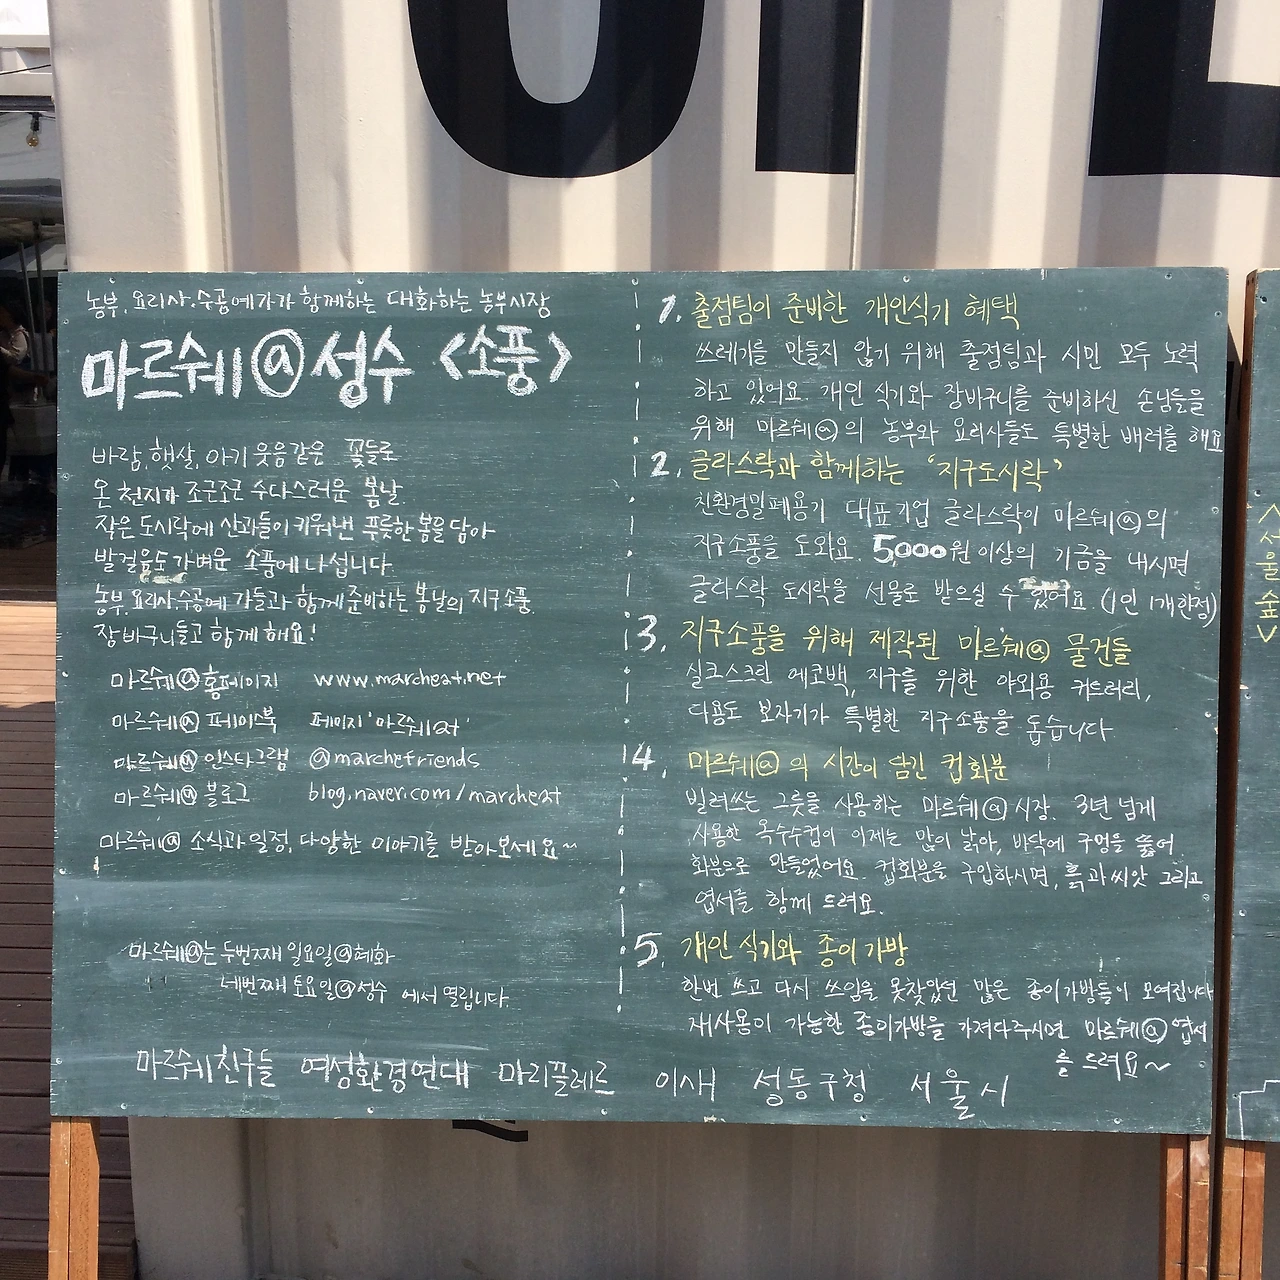 농부.요리사.수공예가가 함께하는 대화하는 농부시장
마르쉐@성수 <소풍>
바람,햇살,아기 웃음같은 꽃들로
온 천지가 조근조근 수다스러운 봄날.
작은 도시락에 산과들이 키워낸 푸릇한 봄을 담아
발걸음도 가벼운 소풍에 나섭니다.
농부.요리사.수공예 가들과 함께 준비하는 봄날의 지구소풍.
장바구니들고 함께 해요!
마르쉐@홈페이지 www.marcheat.net
마르쉐@ 페이스북 페이지'마르쉐at'
마르쉐@ 인스타그램 @marchefriends
마르쉐@ 블로그 blog.naver.com/marcheat
마르쉐@ 소식과 일정, 다양한 이야기를 받아보세요~
마르쉐@는 두번째 일요일@혜화
네번째 토요일@성수 에서 열립니다.
1. 출점팀이 준비한 개인식기 혜택
쓰레기를 만들지 않기 위해 출점팀과 시민 모두 노력
하고 있어요. 개인 식기와 장바구니를 준비하신 손님들을
위해 마르쉐@의 농부와 요리사들도 특별한 배려를 해요
2. 글라스락과 함께하는 '지구도시락'
친환경밀폐용기 대표기업 글라스락이 마르쉐@의
지구소풍을 도와요. 5,000원 이상의 기금을 내시면
글라스락 도시락을 선물로 받으실 수 있어요. (1인 1개한정)
3. 지구소풍을 위해 제작된 마르쉐@ 물건들
실크스크린 에코백, 지구를 위한 야외용 커트러리,
다용도 보자기가 특별한 지구소풍을 돕습니다
4. 마르쉐@의 시간이 담긴 컵화분
빌려쓰는 그릇을 사용하는 마르쉐@시장. 3년 넘게
사용한 옥수수컵이 이제는 많이 낡아, 바닥에 구멍을 뚫어
화분으로 만들었어요. 컵화분을 구입하시면, 흙과씨앗 그리고
엽서를 함께 드려요.
5. 개인 식기와 종이 가방
한번 쓰고 다시 쓰임을 못찾았던 많은 종이가방들이 모여집니다
재사용이 가능한 종이가방을 가져다주시면 마르쉐@ 엽서
를 드려요~
마르쉐친구들 여성환경연대 마리끌레르 이새 성동구청 서울시
<서울숲>